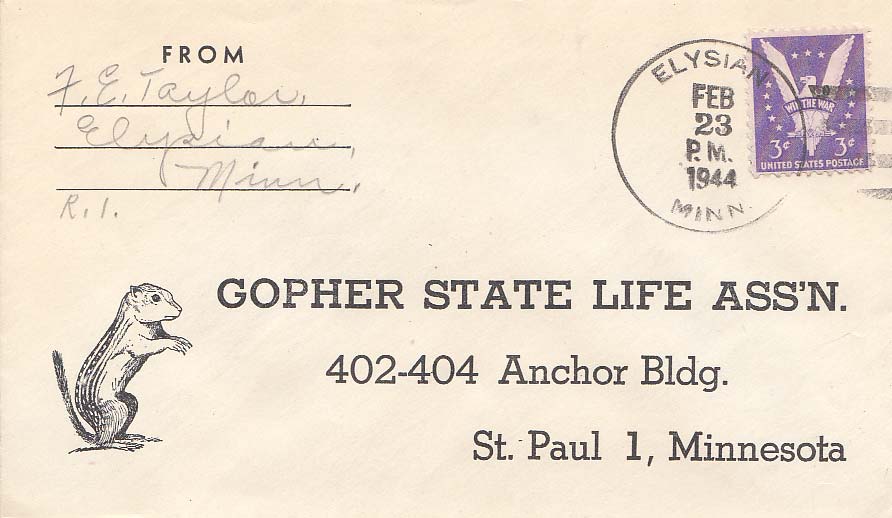 FROM
F. E. Taylor,
Elysian,
Minn,
R. 1.
ELYSIAN
FEB
23
P.M.
1944
MINN.
WIN THE WAR
3¢ 3¢
UNITED STATES POSTAGE
GOPHER STATE LIFE ASS'N.
402-404 Anchor Bldg.
St. Paul 1, Minnesota